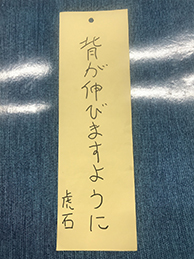 背が伸びますように
虎石